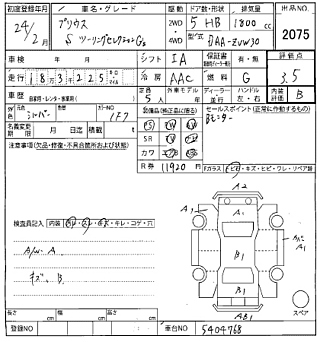 初度登録年月 車名・グレード 駆動 ドア数・形状 排気量 出品NO.
24/2月 プリウス 2WD 5 HB 1800 cc 2075
S ツーリングセレクション G's 4WD 型式 DAA-ZVW30
車検 年 月 日 シフト IA 保証書 有・無 燃料 評価点
走行 183225 冷房 AAC G 3.5
車歴 5 ディーラー 並行 ハンドル 左・右 内装評価 B
自家用・レンタ・事業用
色 シルバー カラーNO 1F7 セールスポイント(正常に作動するもの)
PS PW Bモニター
名義変更期限 月 日迄 積載 SR AW
カワ
注意事項(欠品・修復・不具合箇所および状態) R券 11920 円
Fガラス トビ・キズ・ヒビ・ワレ・リペア跡
検査員記入 内装 キレ・コゲ・穴
A/W. A
キズ. B
A2
A1
A1
B1
B1
AB1
スペア
長さ cm 幅 cm 高さ cm
登録NO 車台NO 5404768